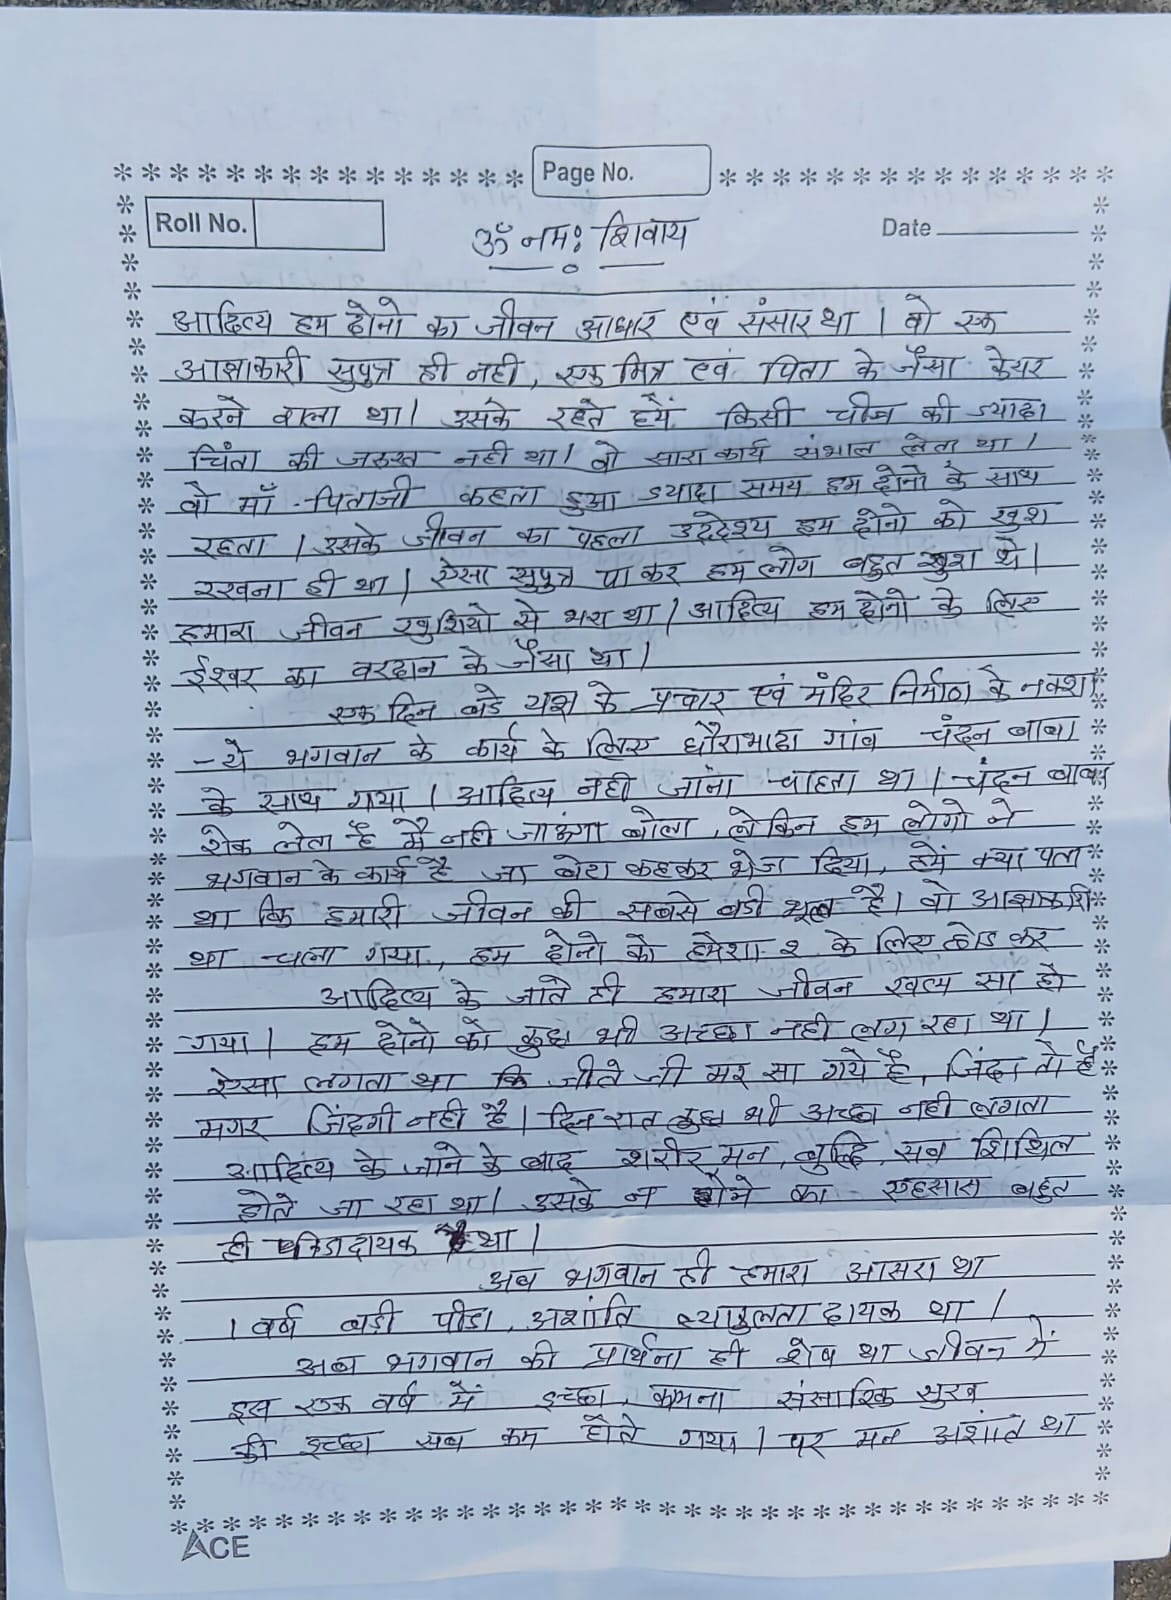 Page No.
Roll No.
Date
ॐ नमः शिवाय
आदित्य हम दोनो का जीवन आधार एवं संसार था । वो एक
आज्ञाकारी सुपुत्र ही नही, एक मित्र एवं पिता के जैसा केयर
करने वाला था। उसके रहते हमें किसी चीज की ज्यादा
चिंता की जरुरत नही था। वो सारा कार्य संभाल लेता था।
वो माँ-पिताजी कहता हुआ ज्यादा समय हम दोनो के साथ
रहता । उसके जीवन का पहला उद्देश्य हम दोनो को खुश
रखना ही था। ऐसा सुपुत्र पा कर हम लोग बहुत खुश थे।
हमारा जीवन खुशियो से भरा था। आदित्य हम दोनो के लिए
ईश्वर का वरदान के जैसा था।
एक दिन बडे यज्ञ के प्रचार एवं मंदिर निर्माण के नक्शा
-ये भगवान के कार्य के लिए धौराभाठा गांव चंदन बाबा
के साथ गया । आदित्य नही जाना चाहता था । चंदन बाबा
रोक लेता है मै नही जाऊंगा बोला, लेकिन हम लोगो ने
भगवान के कार्य है जा बेटा कहकर भेज दिया, हमें क्या पता
था कि हमारी जीवन की सबसे बडी भूल है। वो आज्ञाकारी
था चला गया, हम दोनो को हमेशा २ के लिए छोड कर
आदित्य के जाते ही हमारा जीवन खत्म सा हो
गया । हम दोनो को कुछ भी अच्छा नही लग रहा था ।
ऐसा लगता था कि जीते जी मर सा गये है, जिंदा तो है
मगर जिंदगी नही है। दिन रात कुछ भी अच्छा नही लगता
आदित्य के जाने के बाद शरीर, मन, बुद्धि, सब शिथिल
होते जा रहा था। उसके न होने का एहसास बहुत
ही था ।
अब भगवान ही हमारा आसरा था
1 वर्ष बडी पीडा, अशांति व्याकुलता दायक था ।
अब भगवान की प्रार्थना ही शेष था जीवन में
इस एक वर्ष में इच्छा, कामना संसारिक सुख
की इच्छा सब कम होते गया । पर मन अशांत था
ACE